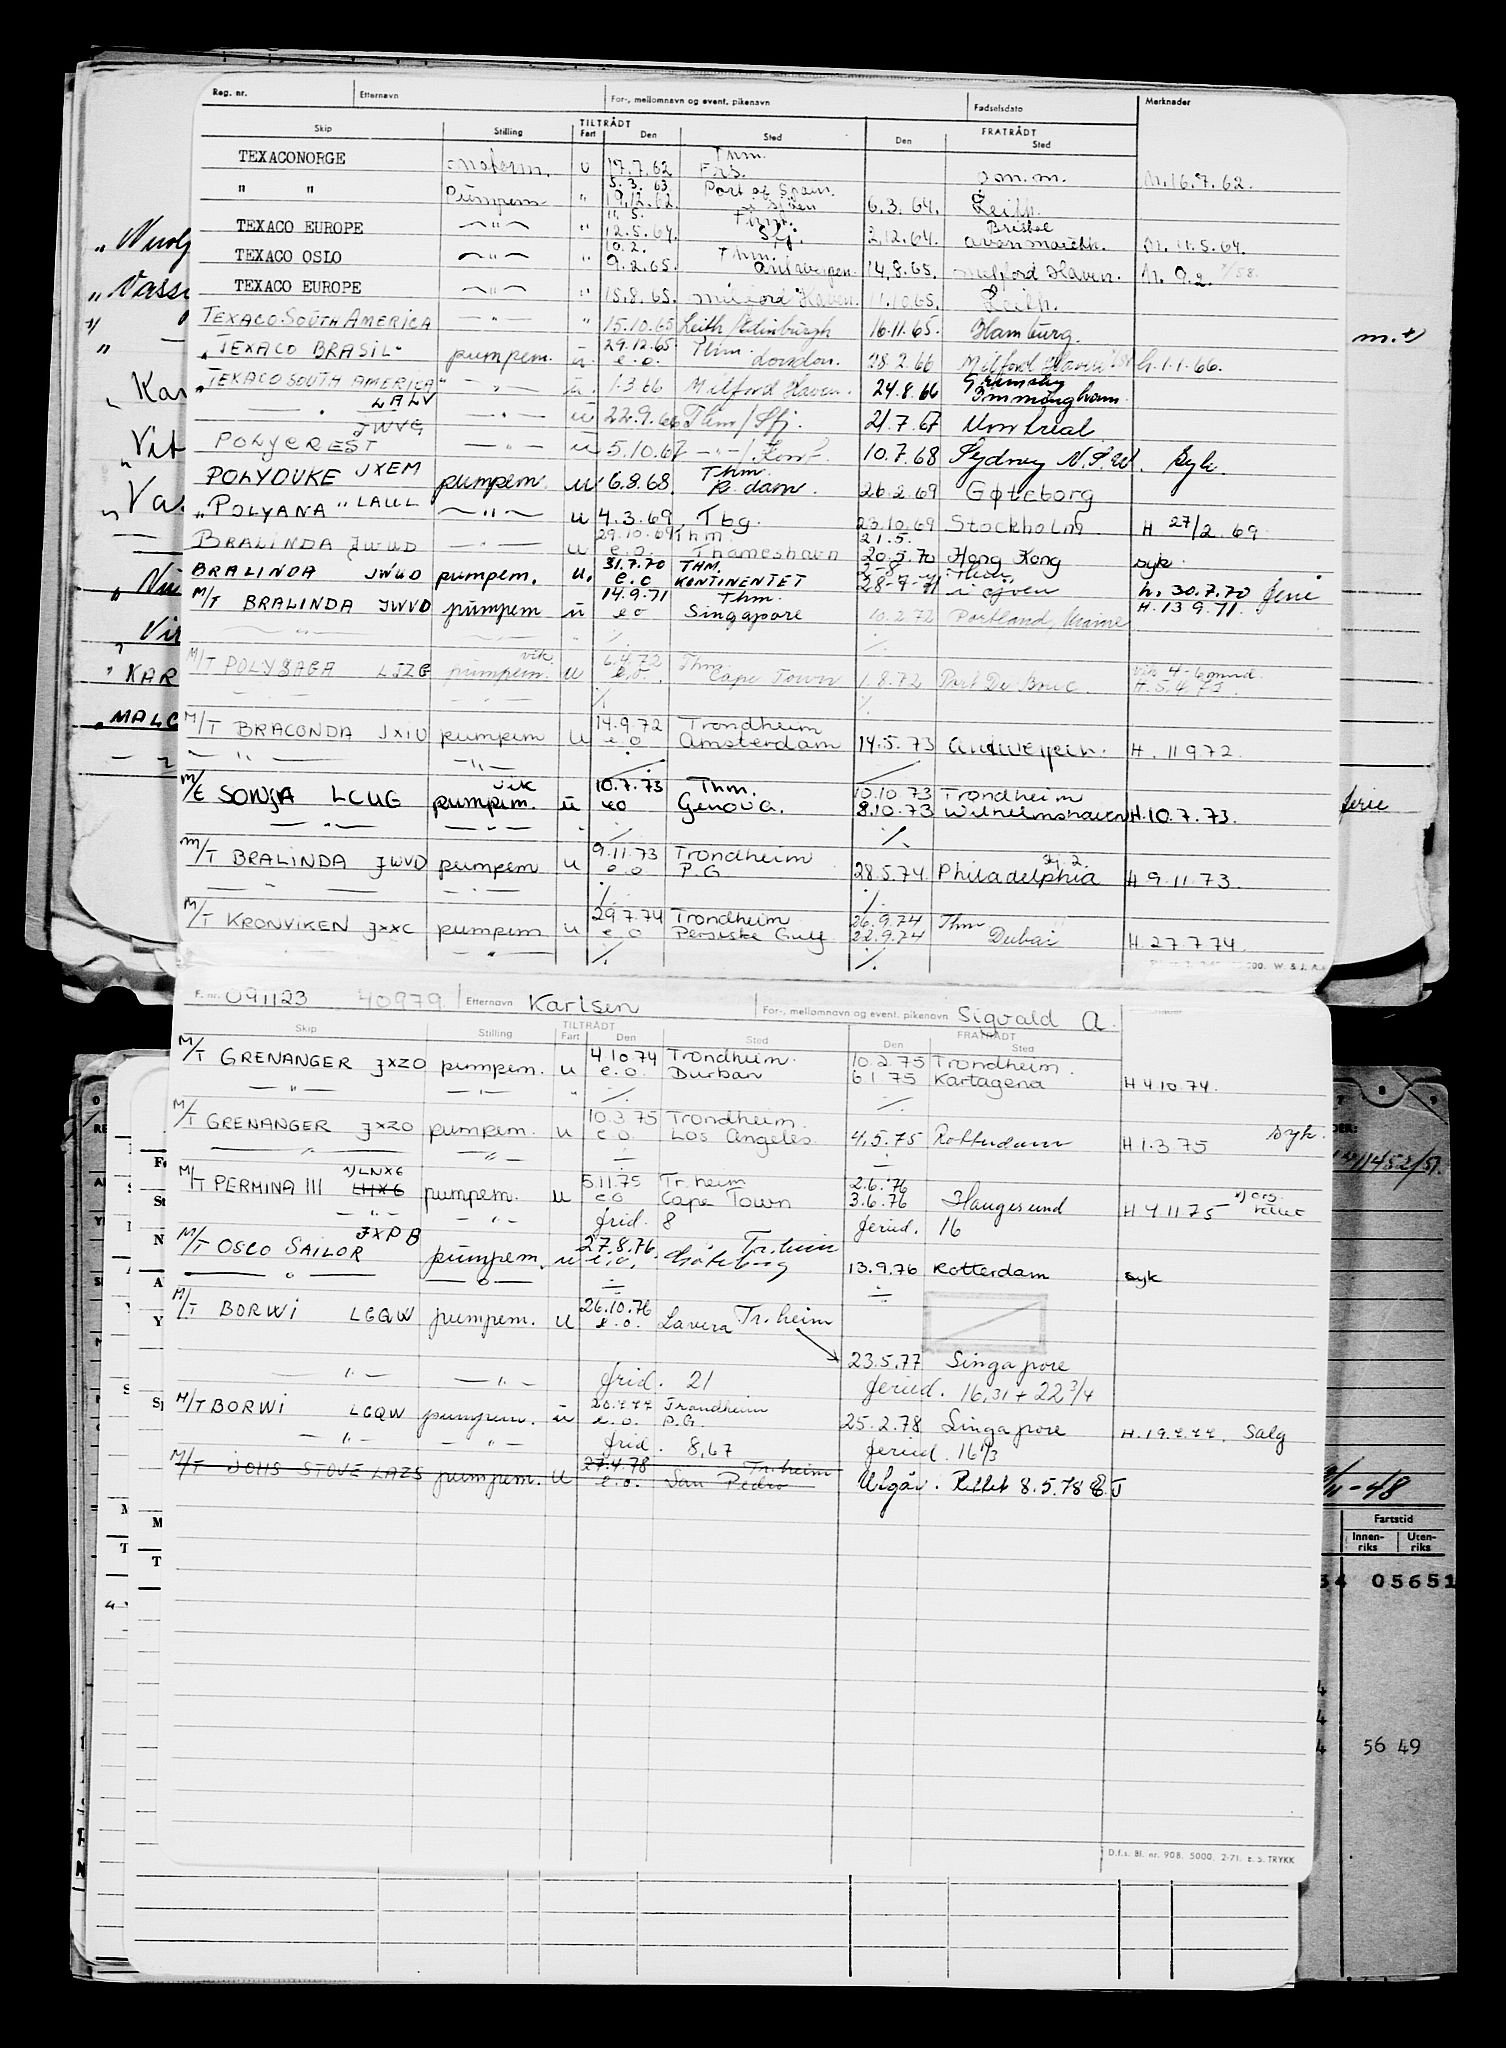 Reg. nr. Etternavn For-, mellomnavn og event. pikenavn Fødselsdato Merknader
TILTRÅDT FRATRÅDT
Skip Stilling Fart Den Sted Den Sted
TEXACONORGE u 17.7.62 Thm. 16.7.62.
" " Pumpem " 5.3.63 19.12.62. Port of Spain 6.3.64. Leith.
TEXACO EUROPE —"— " 11.5. 12.5.64. 3.12.64. M. 11.5.64.
TEXACO OSLO —"— " 10.2. 9.2.65. Thm. Antwerpen 14.8.65. Milford Haven.
TEXACO EUROPE —"— " 15.8.65. Milford Haven. 11.10.65. Leith.
TEXACO SOUTH AMERICA —"— " 15.10.65 Leith/Edinburgh 16.11.65. Hamburg.
"TEXACO BRASIL" pumpem. u. 29.12.65 e.o. Thm. London. 28.2.66 Milford Haven h. 1.1.66.
"TEXACO SOUTH AMERICA" —"— u. 1.3.66 Milford Haven. 24.8.66 Grimsby Immingham.
—"— LALV —"— u 22.9.66 Thm/Sfj. 21.7.67 Montreal
POLYCREST JWVG —"— u 5.10.67 —"—/Kont. 10.7.68 Sydney N.S.W. Syk.
POLYDUKE JXEM pumpem. u 6.8.68. Thm. R.dam. 26.2.69 Gøteborg
"POLYANA" LAUL —"— u 4.3.69. Tbg. 23.10.69 Stockholm H 27/2.69.
BRALINDA JWUD —"— u 29.10.69 e.o. Thm. Thameshavn 21.5. 20.5.70 Hong Kong syk.
BRALINDA JWUD pumpem. u. 31.7.70 e.o THM. KONTINENTET i sjøen h. 30.7.70 ferie
M/T BRALINDA JWVD pumpem u 14.9.71 eo Thm. Singapore 10.2.72 Portland, Maine H. 13.9.71.
—"— —"— ./. ./.
M/T POLYSAGA LJZG pumpem. vik. u 6.4.72 e.o. Thm. Cape Town 1.8.72 Port De Bouc vik 4-6 mnd.
—"— ./. ./.
M/T BRACONDA JXIU pumpem u 14.9.72 e.o Trondheim Amsterdam 14.5.73 Antwerpen. H. 11972.
—"— —"—
M/T SONJA LCUG pumpem. vik u 10.7.73 eo Thm. Genova. 10.10.73 8.10.73 Trondheim Wilhelmshaven H. 10.7.73.
—"— —"— ./. ./.
M/T BRALINDA JWVD pumpem u 9.11.73 e.o Trondheim P.G 28.5.74 Philadelphia H 9.11.73.
—"— —"— ./. ./.
M/T KRONVIKEN JXXC pumpem u 29.7.74 e.o Trondheim Persiske Gulf 26.9.74 22.9.74 Thm Dubai H. 27.7.74.
—"— ./. ./.
F. nr. 091123 40979 Etternavn Karlsen For-, mellomnavn og event. pikenavn Sigvald A.
TILTRÅDT FRATRÅDT
Skip Stilling Fart Den Sted Den Sted
M/T GRENANGER JXZO pumpem. u 4.10.74 e.o. Trondheim. Durban 10.2.75 6.1.75 Trondheim. Kartagena H 4.10.74.
—"— —"— " ./. ./.
M/T GRENANGER JXZO pumpem. u 10.3.75 e.o. Trondheim Los Angeles 4.5.75 Rotterdam H 1.3.75 syk.
—"— —"—
M/T PERMINA III x) LNXG LHXG pumpem. u 5.11.75 e.o Tr.heim Cape Town 2.6.76 3.6.76 Haugesund H 4 11 75 x) ors. rettet
—"— —"— frid. 8 feried. 16
M/T OSCO SAILOR JXPB pumpem. u 27.8.76. e.o. Tr.heim Gøteborg 13.9.76 Rotterdam syk
—"— —"—
M/T BORWI LGQW pumpem. u 26.10.76 e.o. Lavera Tr.heim
23.5.77 Singapore
—"— —"— frid. 21 feried. 16,31 + 22 3/4
M/T BORWI LGQW pumpem. u 20.7.77 e.o. Trondheim P.G. 25.2.78 Singapore H. 19.7.77. Salg
—"— —"— frid. 8,67 feried. 16 1/3
M/T JOHS STOVE LAZS pumpem. u 27.4.78 e.o. Tr.heim San Pedro Utgår. Rettet 8.5.78
D.f.s. Bl. nr. 908. 5000. 2-71. E. S. TRYKK
KAR
MALC
m.t)
ferie
1452/51.
-48
Fartstid
Innenriks Utenriks
05651
56 49